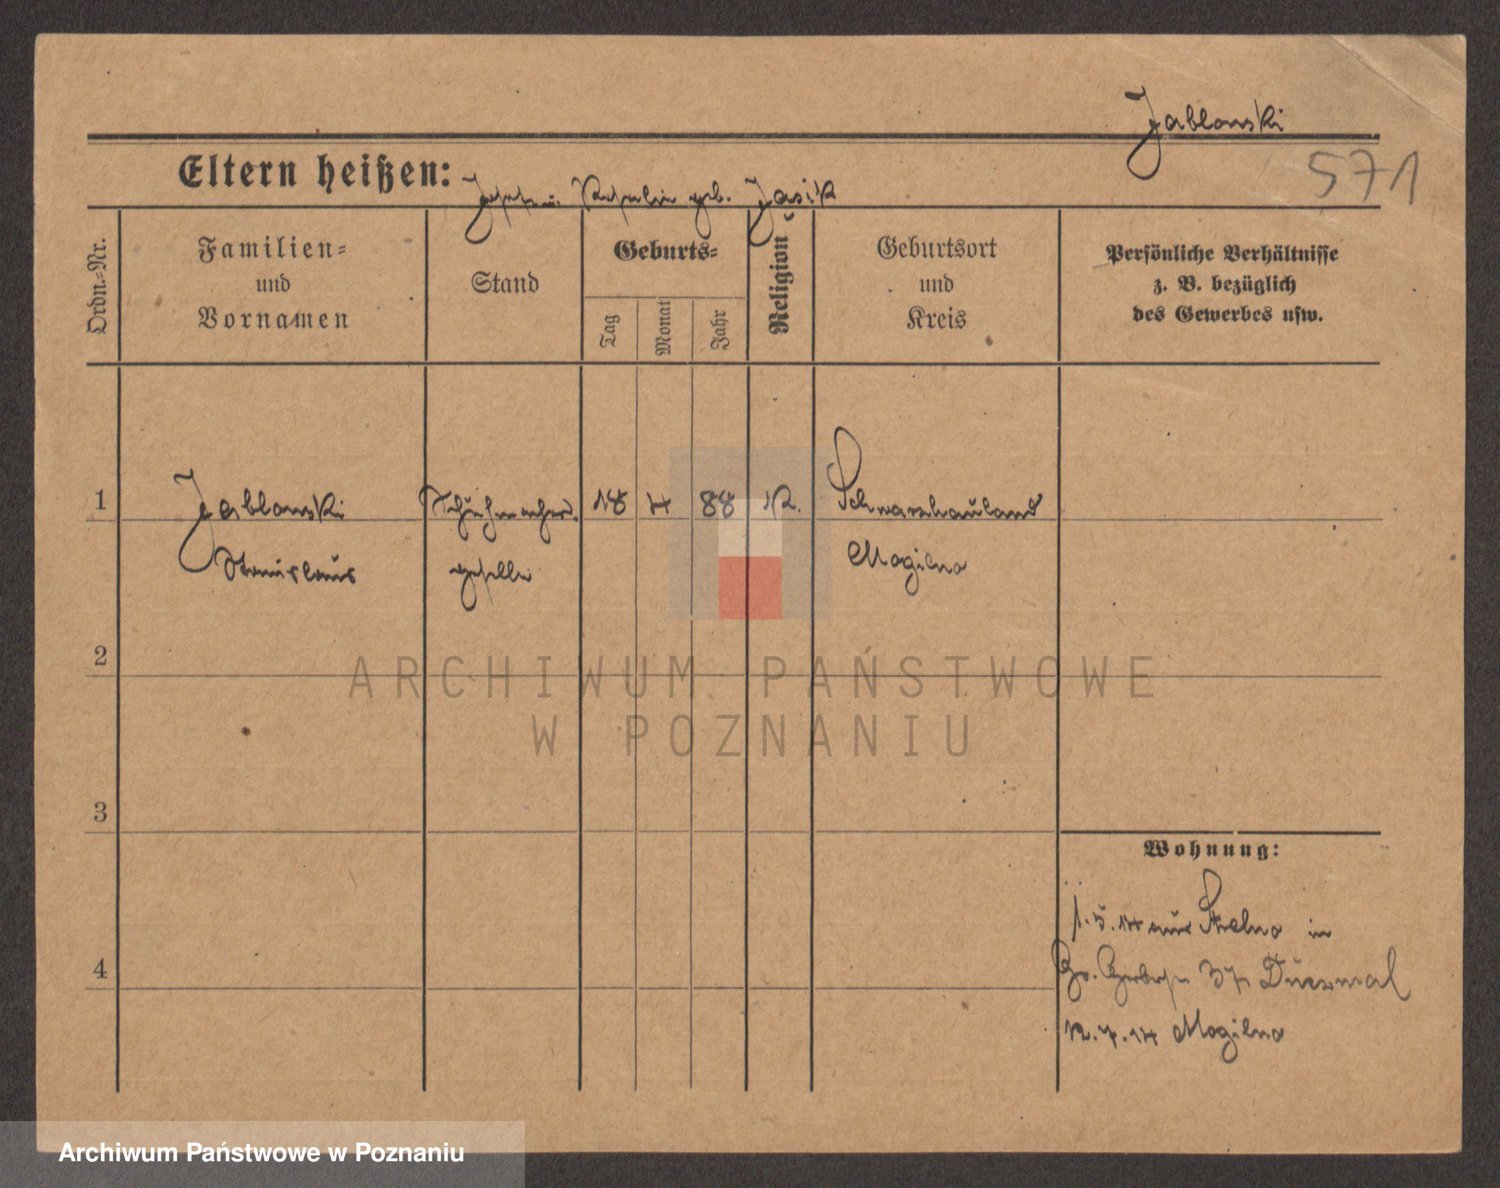 Jablonski
571
Eltern heißen: Josef u. geb. Jasik
Ordn.-Nr.
Familien-
und
Vornamen
Stand
Geburts-
Tag
Monat
Jahr
Religion
Geburtsort
und
Kreis
Persönliche Verhältnisse
z. B. bezüglich
des Gewerbes usw.
1 Jablonski Schuhmacher 18 4 88 K. Schwarzhauland
Stanislaus geselle Mogilno
2
ARCHIWUM PAŃSTWOWE
W POZNANIU
3
Wohnung:
1.5.14 aus Strelno in
4 Gr. Gerberstr 37 Duczmal
12.7.14 Mogilno
Archiwum Państwowe w Poznaniu